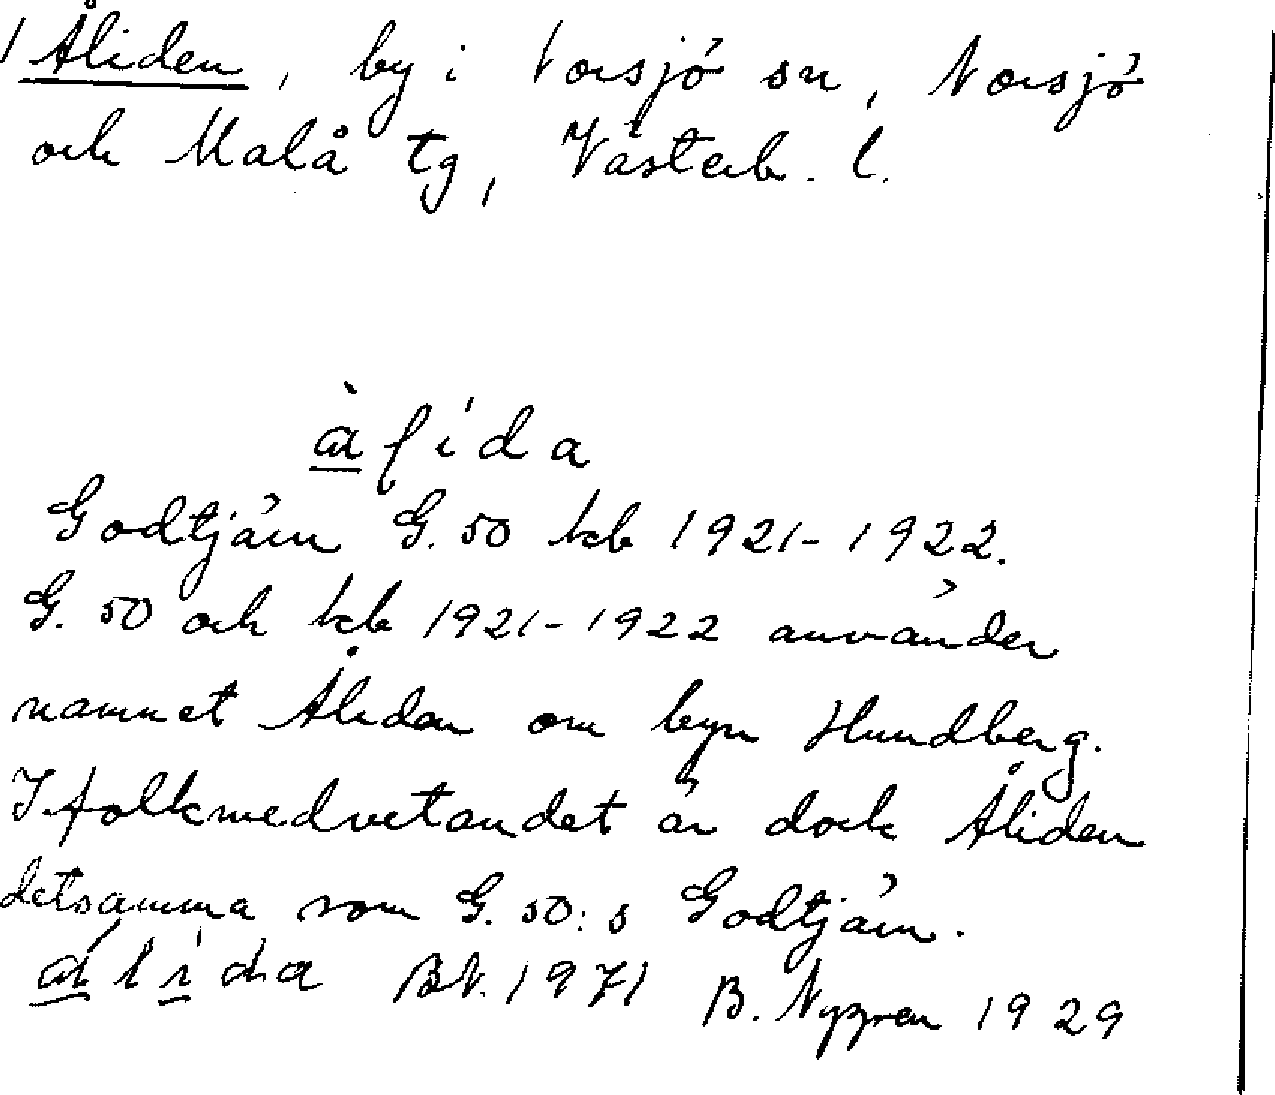 Åliden, by i Norsjö sn, Norsjö
och Malå tg, Västerb. l.
àlida
Godtjärn G. 50 kb 1921-1922.
G. 50 och kb 1921-1922 använder
namnet Åliden om byn Hundberg.
I folkmedvetandet är dock Åliden
detsamma som G. 50:s Godtjärn.
álida BN. 1971 B. Nygren 1929